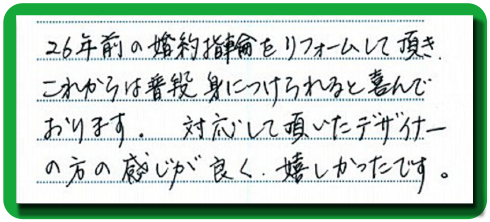 26年前の婚約指輪をリフォームして頂き、
これからは普段身につけられると喜んで
おります。 対応して頂いたデザイナー
の方の感じが良く、嬉しかったです。